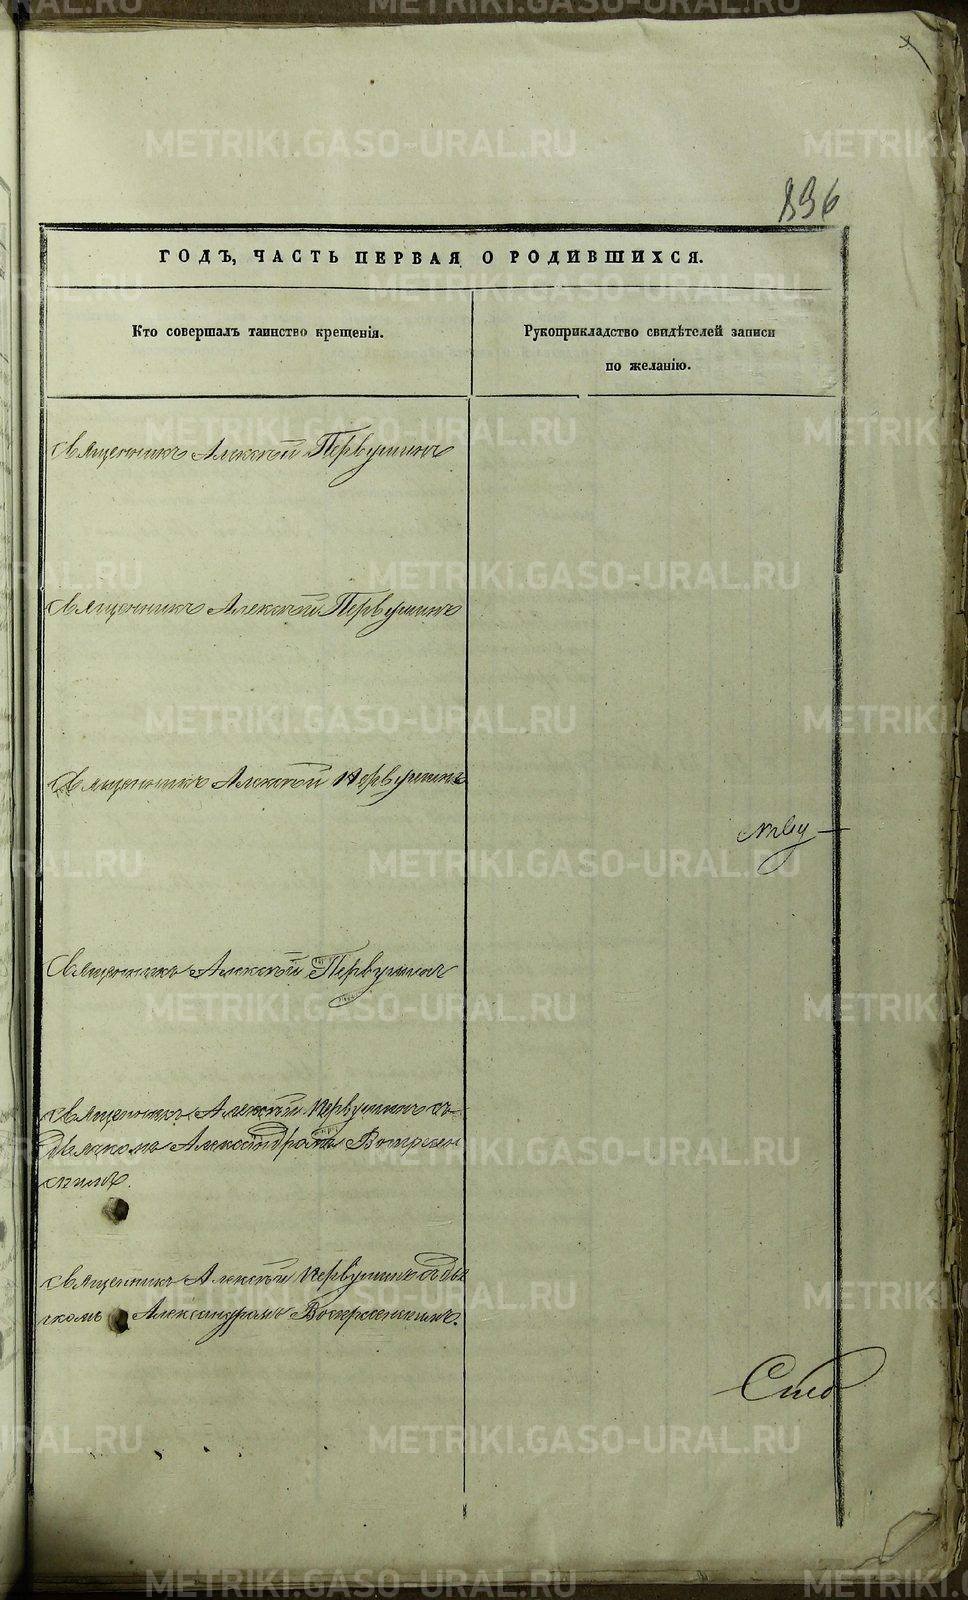 896
ГОДЪ, ЧАСТЬ ПЕРВАЯ О РОДИВШИХСЯ.
Кто совершалъ таинство крещенія.
Рукоприкладство свидѣтелей записи
по желанію.
Священникъ Алексѣй Первушинъ
Священникъ Алексѣй Первушинъ
Священникъ Алексѣй Первушинъ
Священникъ Алексѣй Первушинъ
Священникъ Алексѣй Первушинъ съ
дьячкомъ Александромъ Воскресен
скимъ.
Священникъ Алексѣй Первушинъ съ дья
чкомъ Александромъ Воскресенскимъ.
METRIKI.GASO-URAL.RU